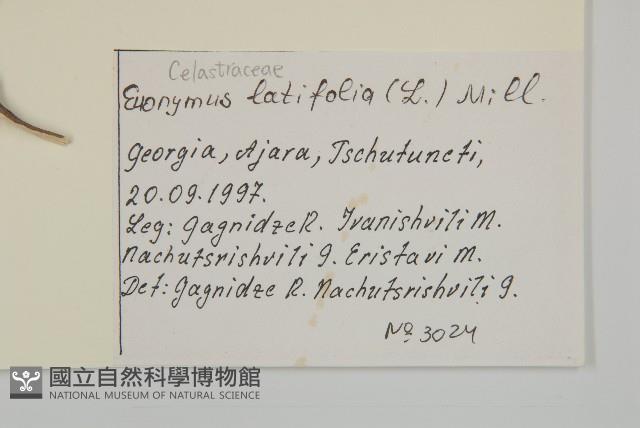 Celastraceae
Euonymus latifolia (L.) Mill.
Georgia, Ajara, Tschutuneti,
20.09.1997.
Leg: Gagnidze R. Ivanishvili M.
Nachutsrishvili G. Eristavi M.
Det: Gagnidze R. Nachutsrishvili G.
№ 3024
國立自然科學博物館
NATIONAL MUSEUM OF NATURAL SCIENCE